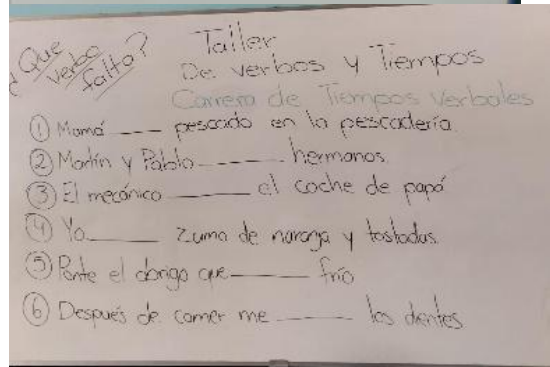 ¿Que verbo falta?
Taller
De verbos y Tiempos
Carrera de Tiempos Verbales
① Mamá ____ pescado en la pescadería.
② Martín y Pablo ____ hermanos.
③ El mecánico ____ el coche de papá
④ Yo ____ zumo de naranja y tostadas.
⑤ Ponte el abrigo que ____ frío
⑥ Después de comer me ____ los dientes